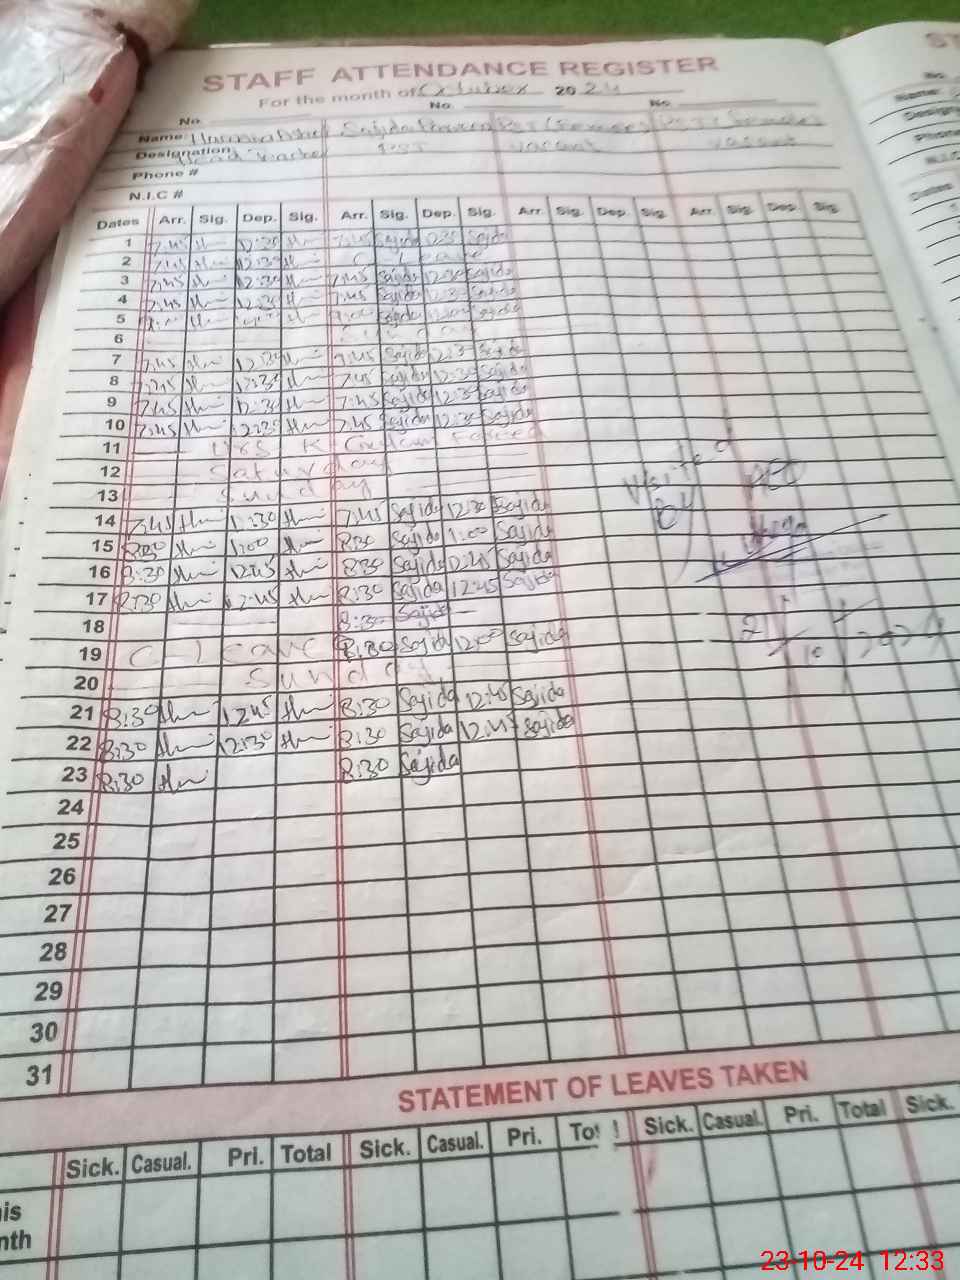 STAFF ATTENDANCE REGISTER
For the month of October 2024
No. No. No.
Name: Sajida Parveen PST (Female) PST (Female)
Designation Head Teacher PST Vacant Vacant
Phone #
N.I.C #
Dates Arr. Sig. Dep. Sig. Arr. Sig. Dep. Sig. Arr. Sig. Dep. Sig. Arr. Sig. Dep. Sig.
1 7:45 12:30 7:45 Sajida 12:30 Sajida
2 7:45 12:30 C Leave
3 7:45 12:30 7:45 Sajida 12:30 Sajida
4 7:45 12:30 7:45 Sajida 12:30 Sajida
5 Sajida Sajida
6 Sunday
7 7:45 12:30 7:45 Sajida 12:30 Sajida
8 7:45 12:30 7:45 Sajida 12:30 Sajida
9 7:45 12:30 7:45 Sajida 12:30 Sajida
10 7:45 12:30 7:45 Sajida 12:30 Sajida
11 Urs Fareed
12 Saturday
13 Sunday
14 7:45 12:30 7:45 Sajida 12:30 Sajida
15 8:30 1:00 8:30 Sajida 1:00 Sajida
16 8:30 12:45 8:30 Sajida 12:45 Sajida
17 8:30 12:45 8:30 Sajida 12:45 Sajida
18 8:30 Sajida
19 C-Leave 8:30 Sajida 12:00 Sajida
20 Sunday
21 8:30 12:45 8:30 Sajida 12:45 Sajida
22 8:30 12:30 8:30 Sajida 12:45 Sajida
23 8:30 8:30 Sajida
24
25
26
27
28
29
30
31
Visited
By AEO
21/10/2024
STATEMENT OF LEAVES TAKEN
Sick. Casual. Pri. Total Sick. Casual. Pri. Sick. Casual. Pri. Total Sick.
23-10-24 12:33